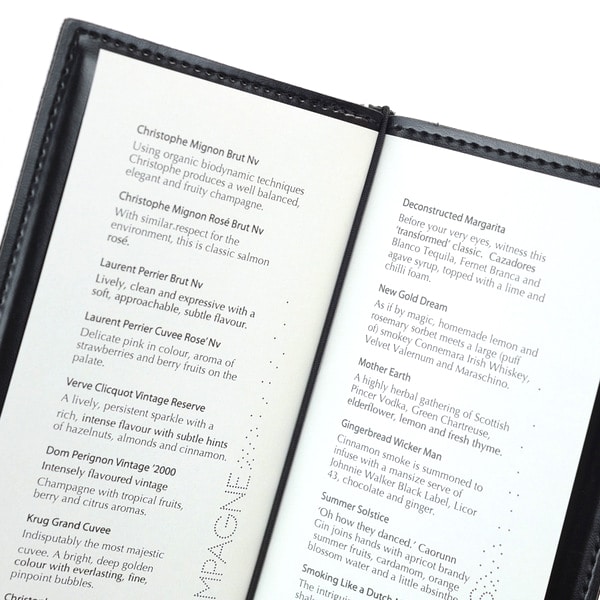 Christophe Mignon Brut Nv
Using organic biodynamic techniques
Christophe produces a well balanced,
elegant and fruity champagne.
Christophe Mignon Rosé Brut Nv
With similar respect for the
environment, this is classic salmon
rosé.
Laurent Perrier Brut Nv
Lively, clean and expressive with a
soft, approachable, subtle flavour.
Laurent Perrier Cuvee Rose' Nv
Delicate pink in colour, aroma of
strawberries and berry fruits on the
palate.
Verve Clicquot Vintage Reserve
A lively, persistent sparkle with a
rich, intense flavour with subtle hints
of hazelnuts, almonds and cinnamon.
Dom Perignon Vintage '2000
Intensely flavoured vintage
Champagne with tropical fruits,
berry and citrus aromas.
Krug Grand Cuvee
Indisputably the most majestic
cuvee. A bright, deep golden
colour with everlasting, fine,
pinpoint bubbles.
MPAGNE
Deconstructed Margarita
Before your very eyes, witness this
'transformed' classic. Cazadores
Blanco Tequila, Fernet Branca and
agave syrup, topped with a lime and
chilli foam.
New Gold Dream
As if by magic, homemade lemon and
rosemary sorbet meets a large (puff
of) smokey Connemara Irish Whiskey,
Velvet Valernum and Maraschino.
Mother Earth
A highly herbal gathering of Scottish
Pincer Vodka, Green Chartreuse,
elderflower, lemon and fresh thyme.
Gingerbread Wicker Man
Cinnamon smoke is summoned to
infuse with a mansize serve of
Johnnie Walker Black Label, Licor
43, chocolate and ginger.
Summer Solstice
'Oh how they danced,' Caorunn
Gin joins hands with apricot brandy
summer fruits, cardamom, orange
blossom water and a little absinthe
Smoking Like a Dutch
The intrigui